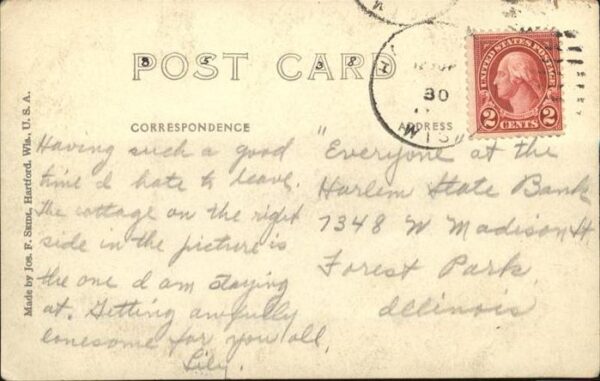 POST CARD
8 5 3 8
CORRESPONDENCE
ADDRESS
30
WIS
UNITED STATES POSTAGE
2 CENTS 2
Made by Jos. F. Seidl, Hartford, Wis., U. S. A.
Having such a good
time I hate to leave.
The cottage on the right
side in the picture is
the one I am staying
at. Getting awfully
lonesome for you all,
Lily.
"Everyone at the
Harlem State Bank
7348 W Madison St
Forest Park,
Illinois